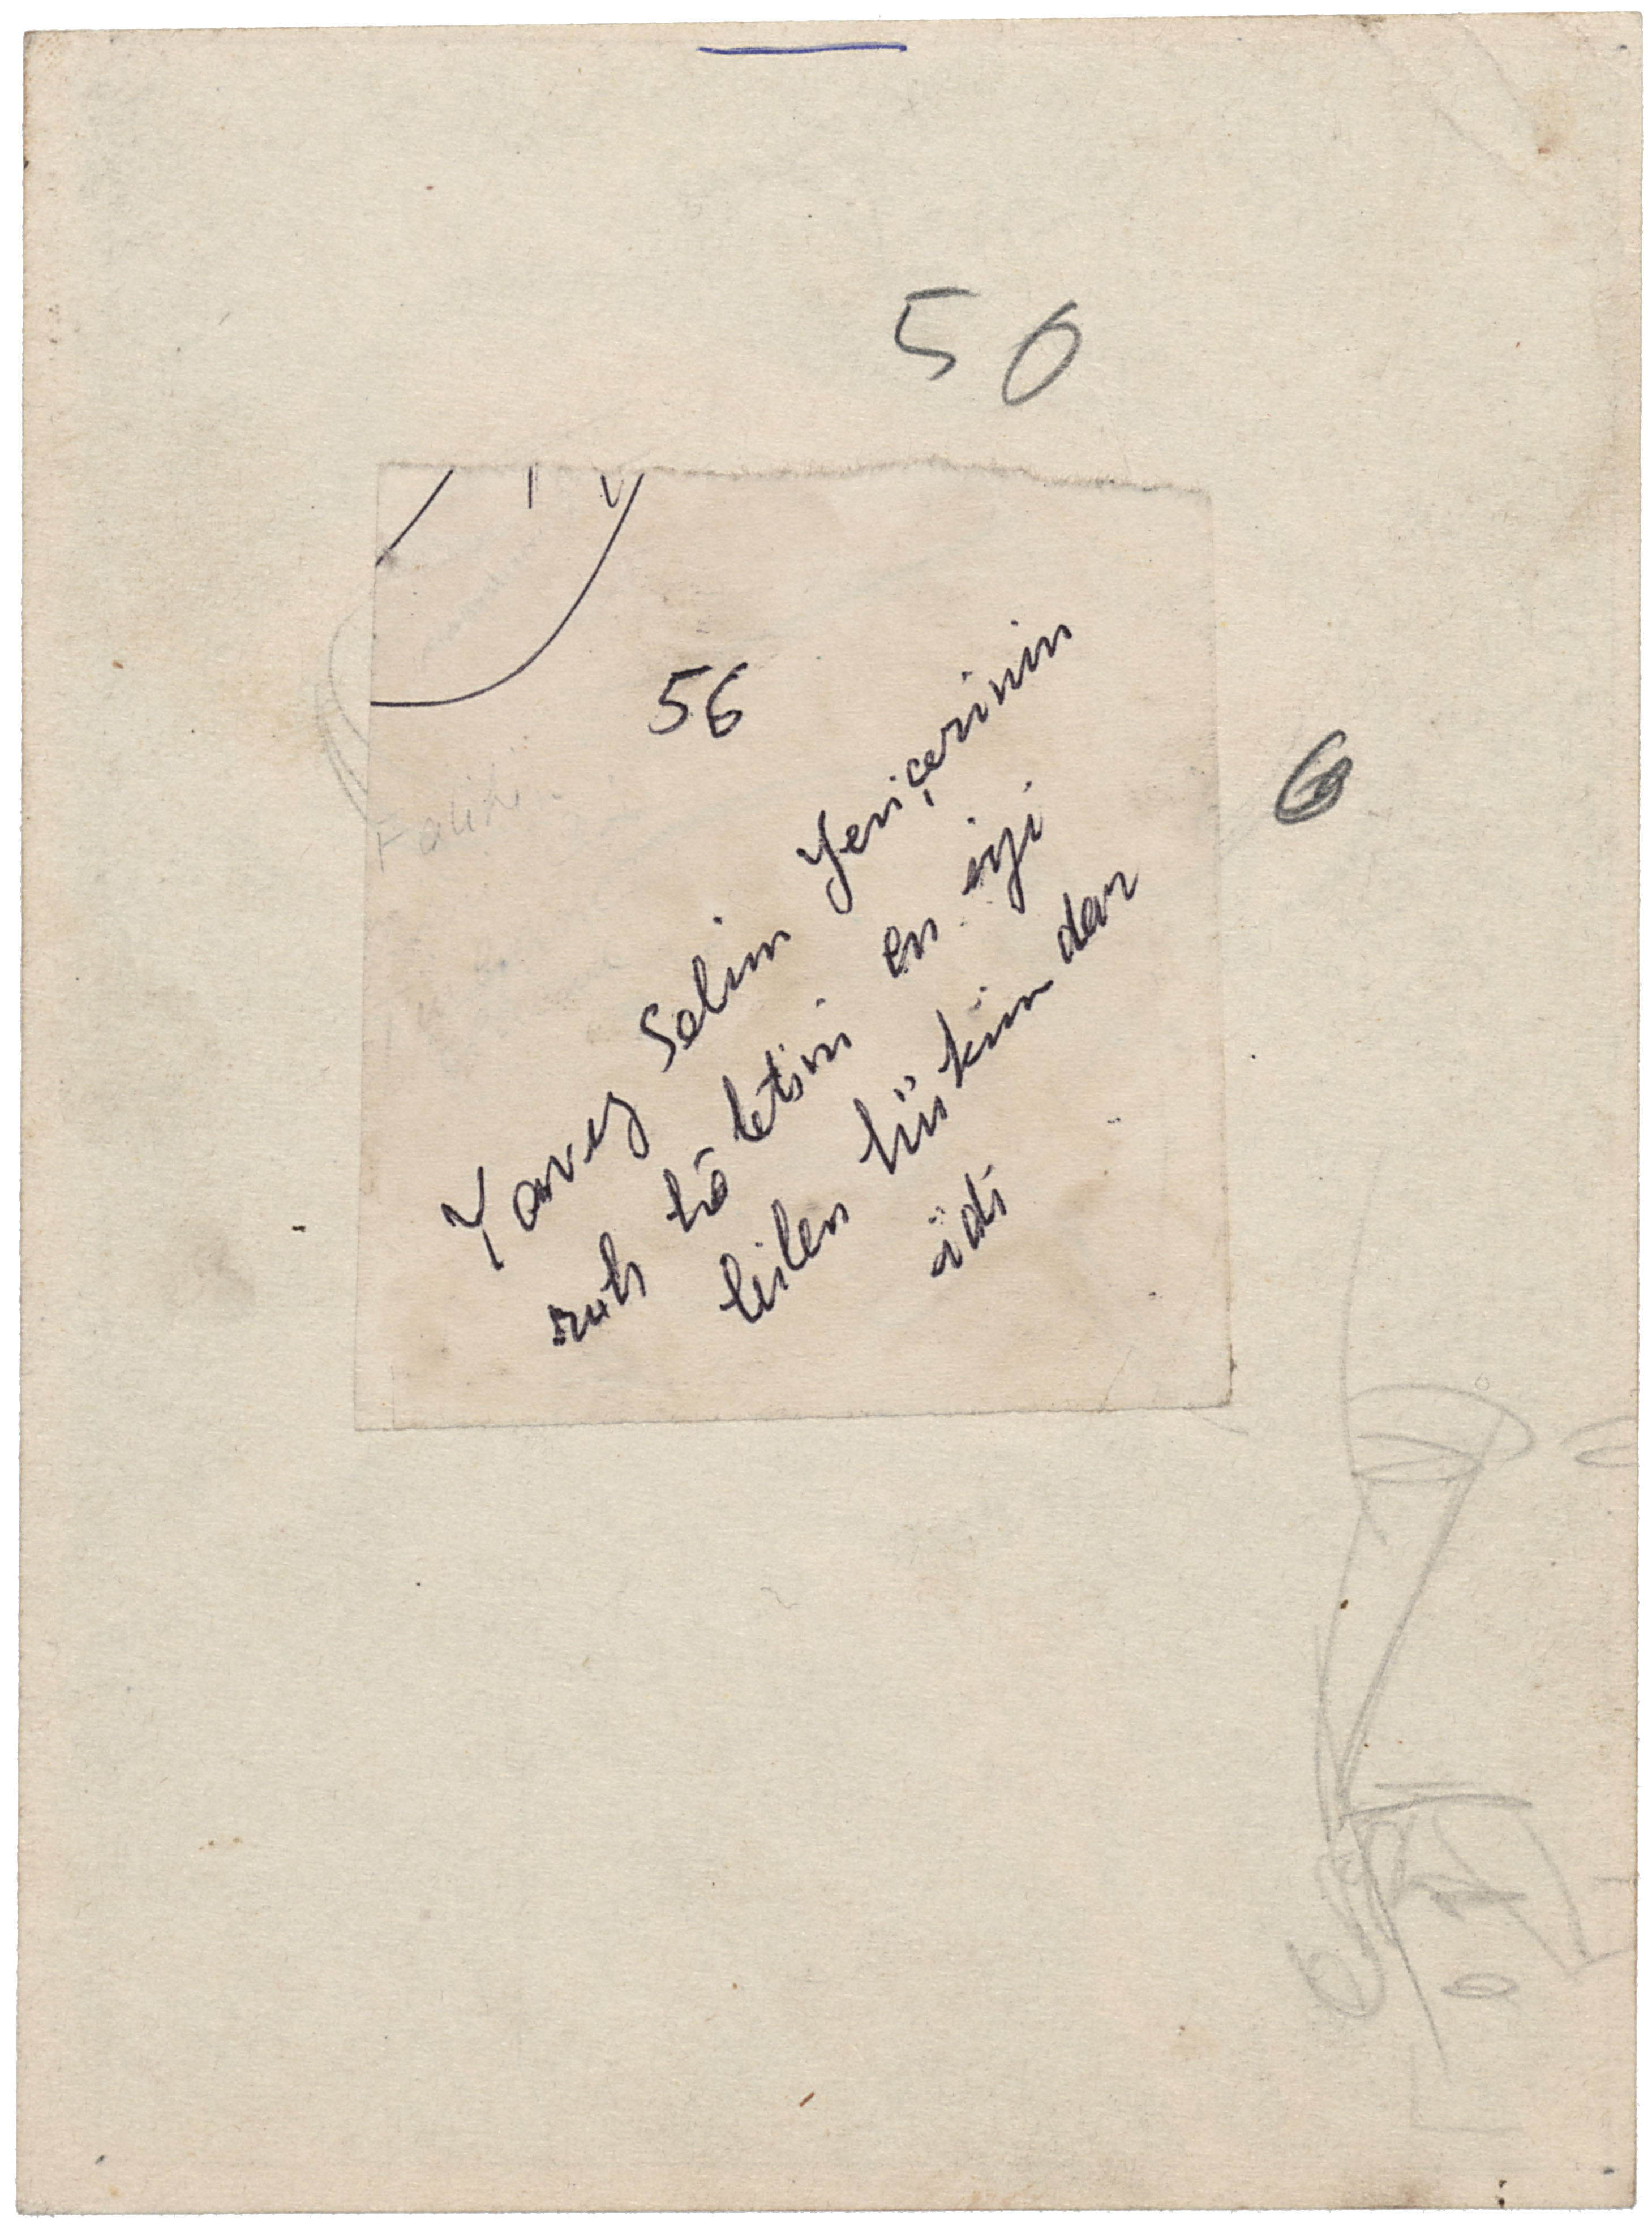 56
56
6
Yavuz Selim Yeniçerinin
ruh hâletini en iyi
bilen hükümdar
idi